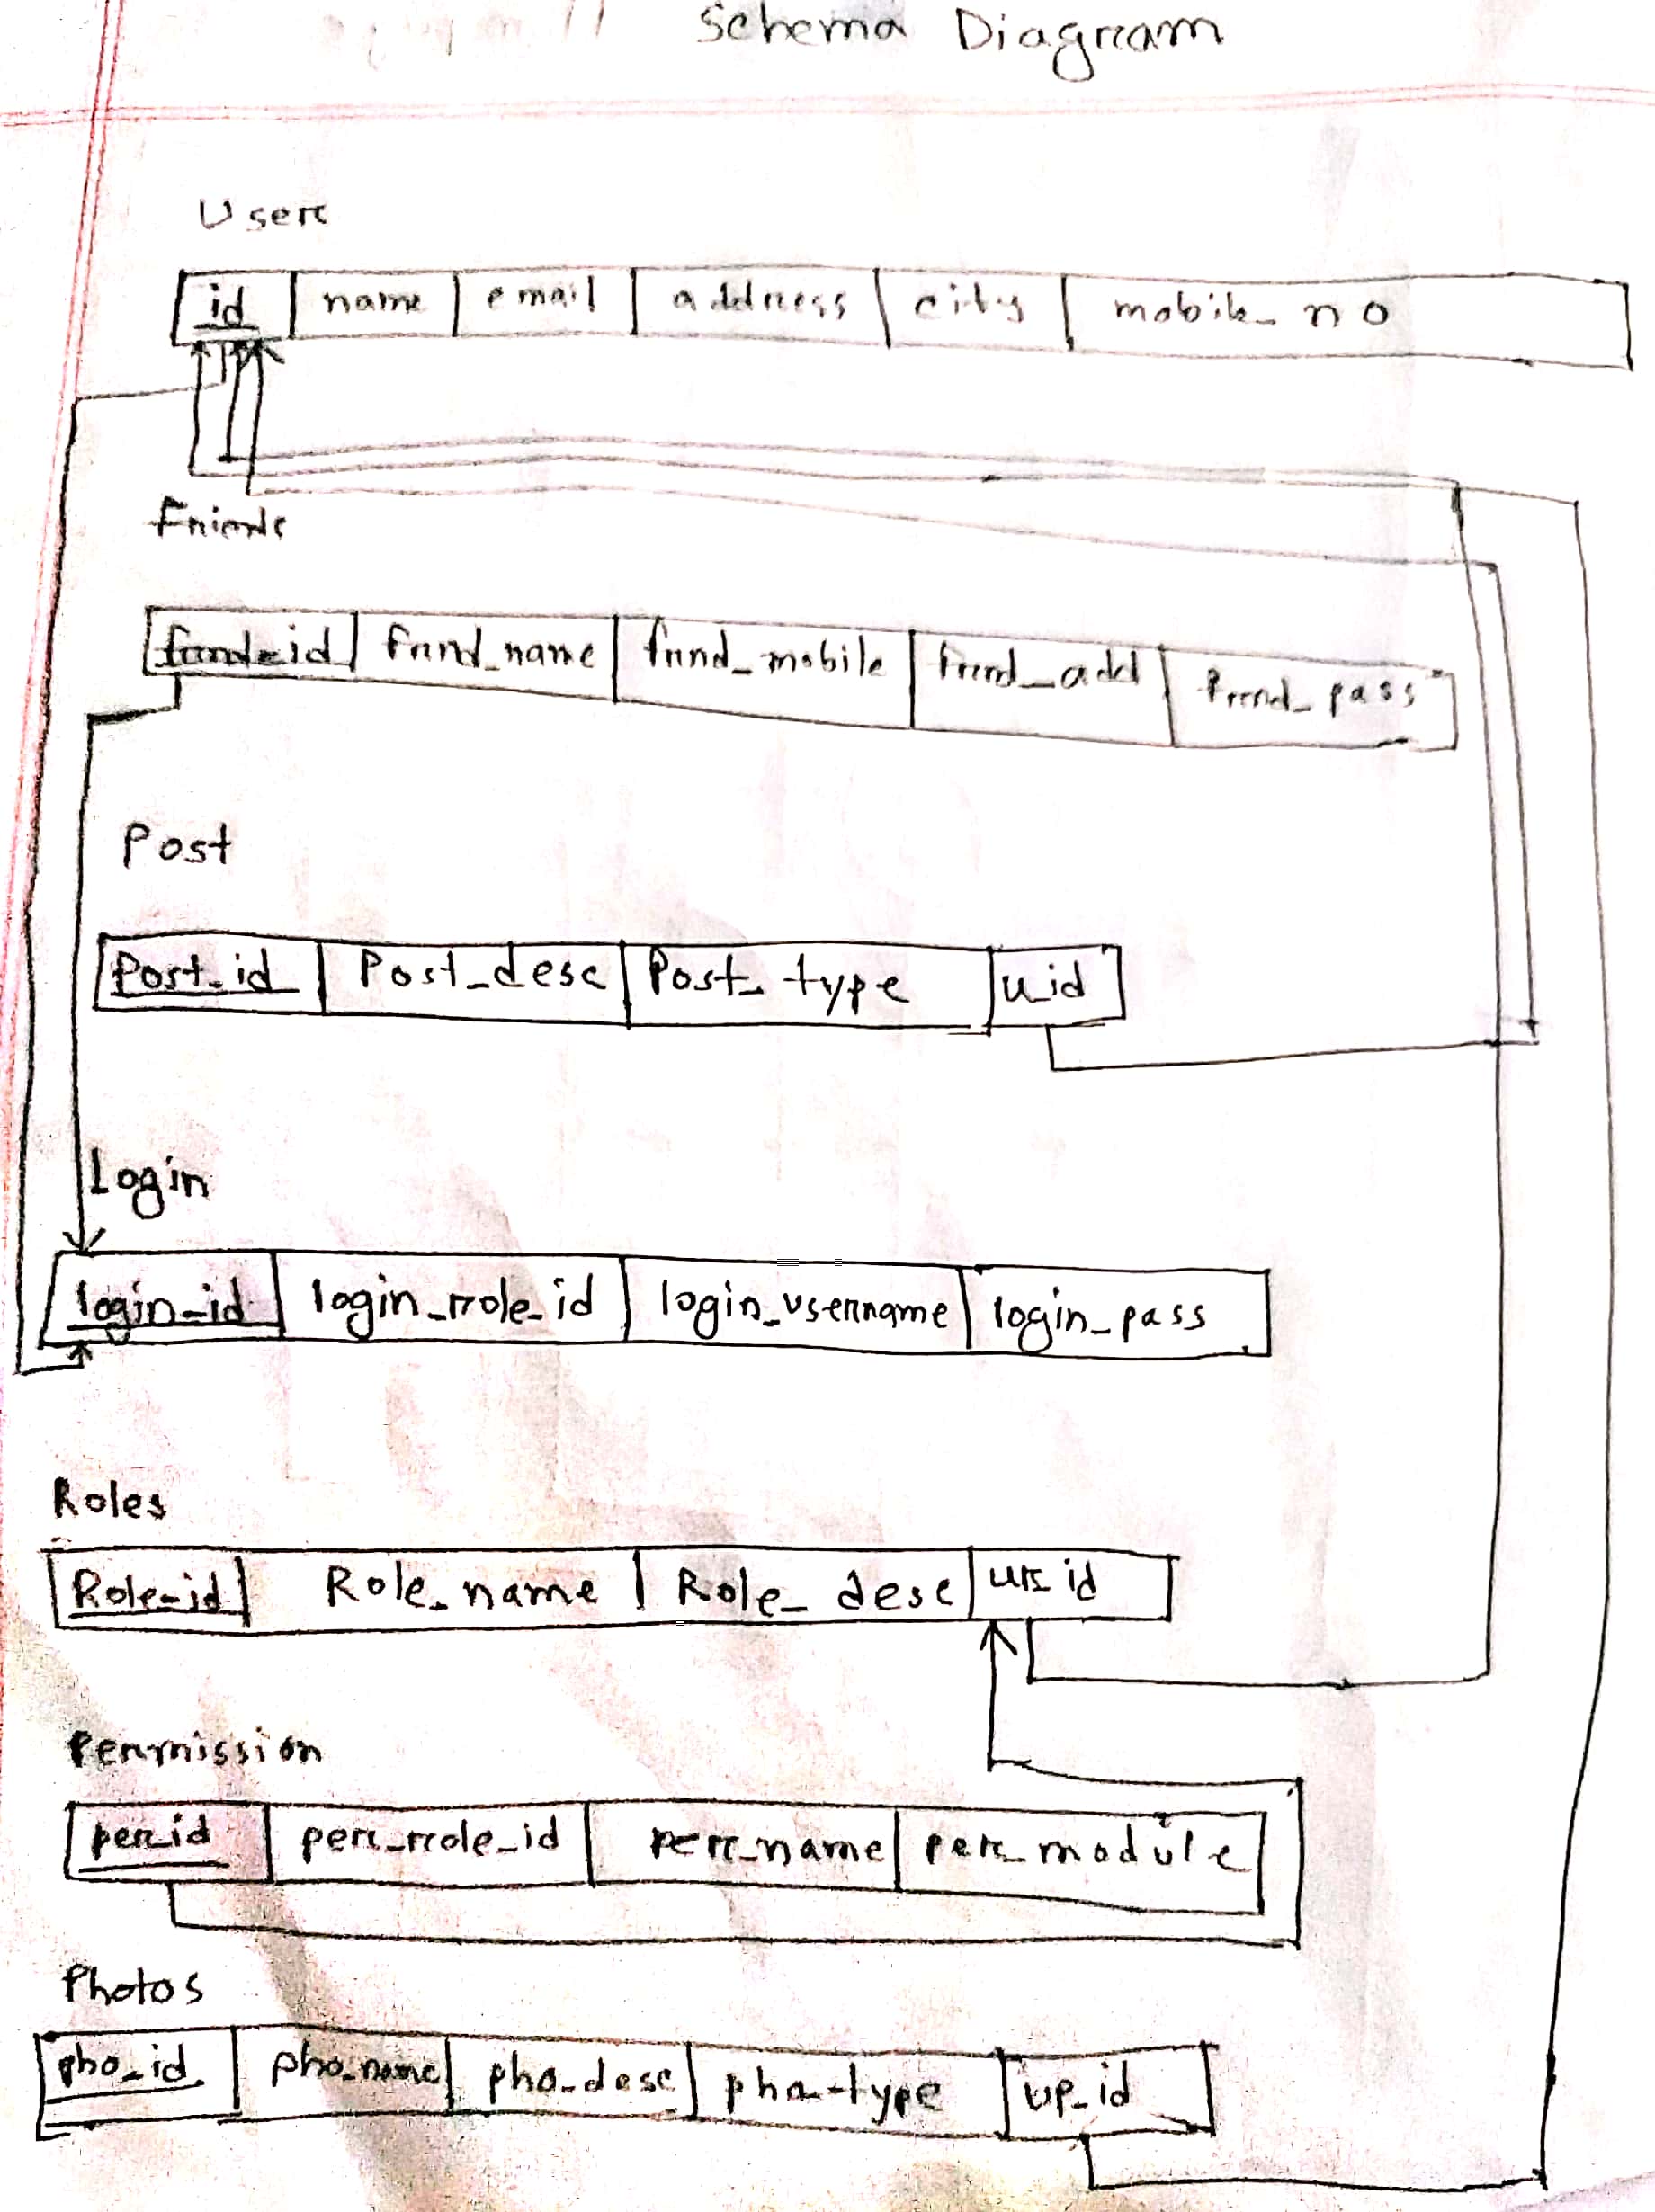 Schema Diagram
User
id name email address city mobile_no
Friends
frnd_id frnd_name frnd_mobile frnd_add frnd_pass
Post
Post_id Post_desc Post_type u_id
Login
login_id login_role_id login_username login_pass
Roles
Role_id Role_name Role_desc ur_id
Permission
per_id per_role_id per_name per_module
Photos
pho_id pho_name pho_desc pho_type up_id